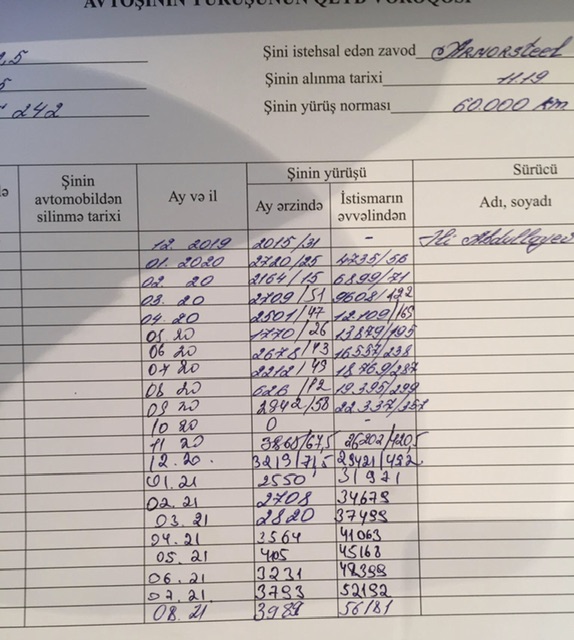 AVTOŞİNİN YÜRÜŞÜNÜN QEYD VƏRƏQƏSİ
Şini istehsal edən zavod Arnorsteel
5
Şinin alınma tarixi 11 19
242
Şinin yürüş norması 60.000 km
Şinin avtomobildən silinmə tarixi
Ay və il
Şinin yürüşü
Ay ərzində
İstismarın əvvəlindən
Sürücü
Adı, soyadı
12. 2019 2015/31 -
01. 2020 2720/25 4735/56
02. 20 2164/15 6899/71
03. 20 2709/51 9608/122
04. 20 2501/47 12.109/169
05 20 1770/26 13879/195
06 20 2678/43 16557/238
07 20 2212/49 18.769/287
08 20 626/12 19.395/299
09 20 2942/58 22.337/357
10 20 0 -
11 20 3865/67,5 26202/420,5
12. 20. 3219/71,5 29421/492
01. 21 2550 31971
02. 21 2708 34679
03. 21 2820 37499
04. 21 3564 41063
05. 21 45168
06. 21 3231 48399
07. 21 3793 52192
08. 21 3989 56181